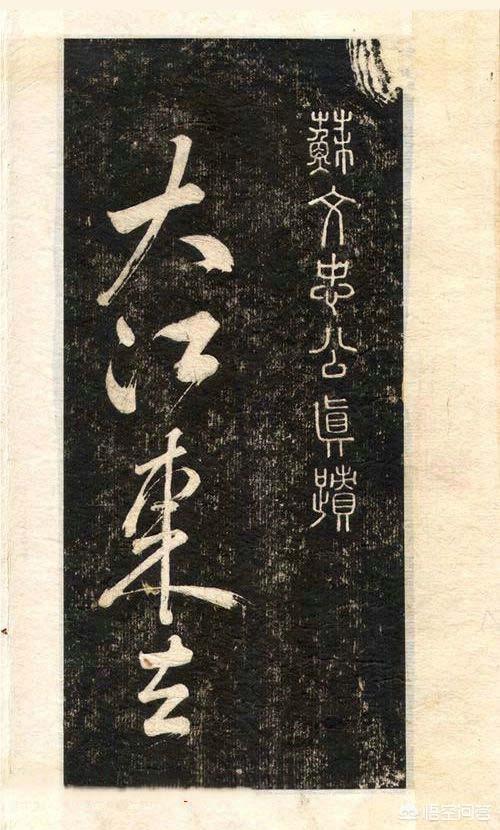 蘇文忠公眞蹟
大江東去
悟空问答